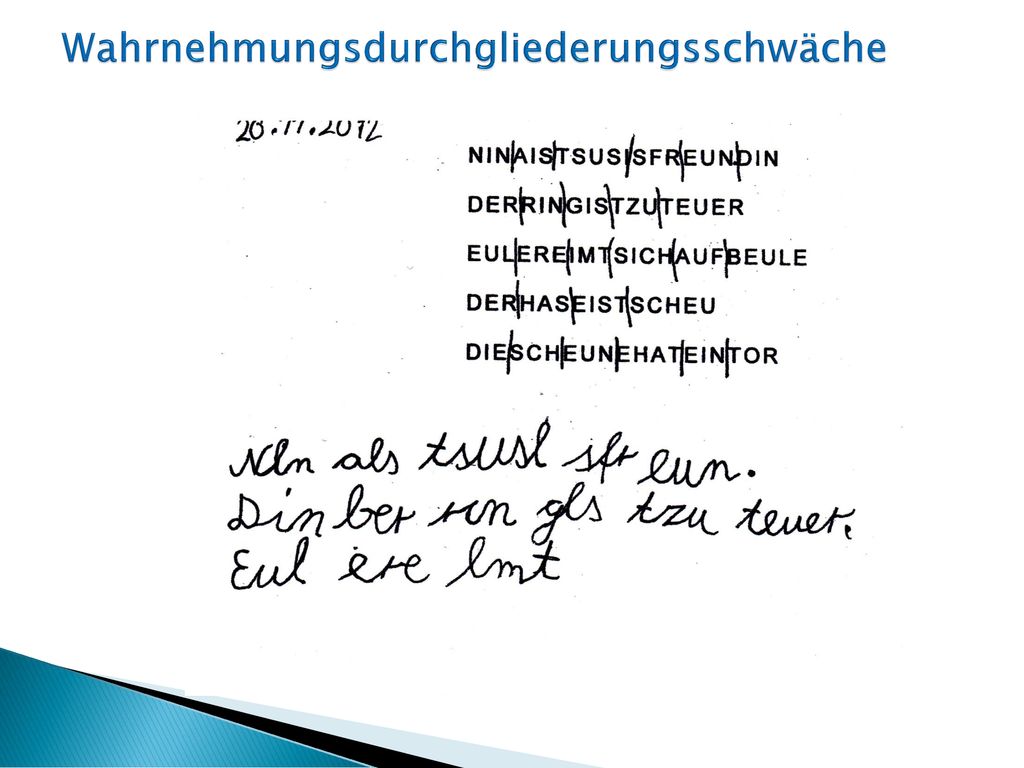 Wahrnehmungsdurchgliederungsschwäche
20.11.2012
NIN|AIS|TSUS|ISFR|EUN|DIN
DER|RIN|GIS|TZU|TEUER
EUL|ERE|IMT|SICH|AUF|BEULE
DER|HAS|EIST|SCHEU
DIE|SCH|EUN|EHAT|EIN|TOR
Nln als tsusl sfr eun.
Din ber rin gls tzu teuer.
Eul ere lmt